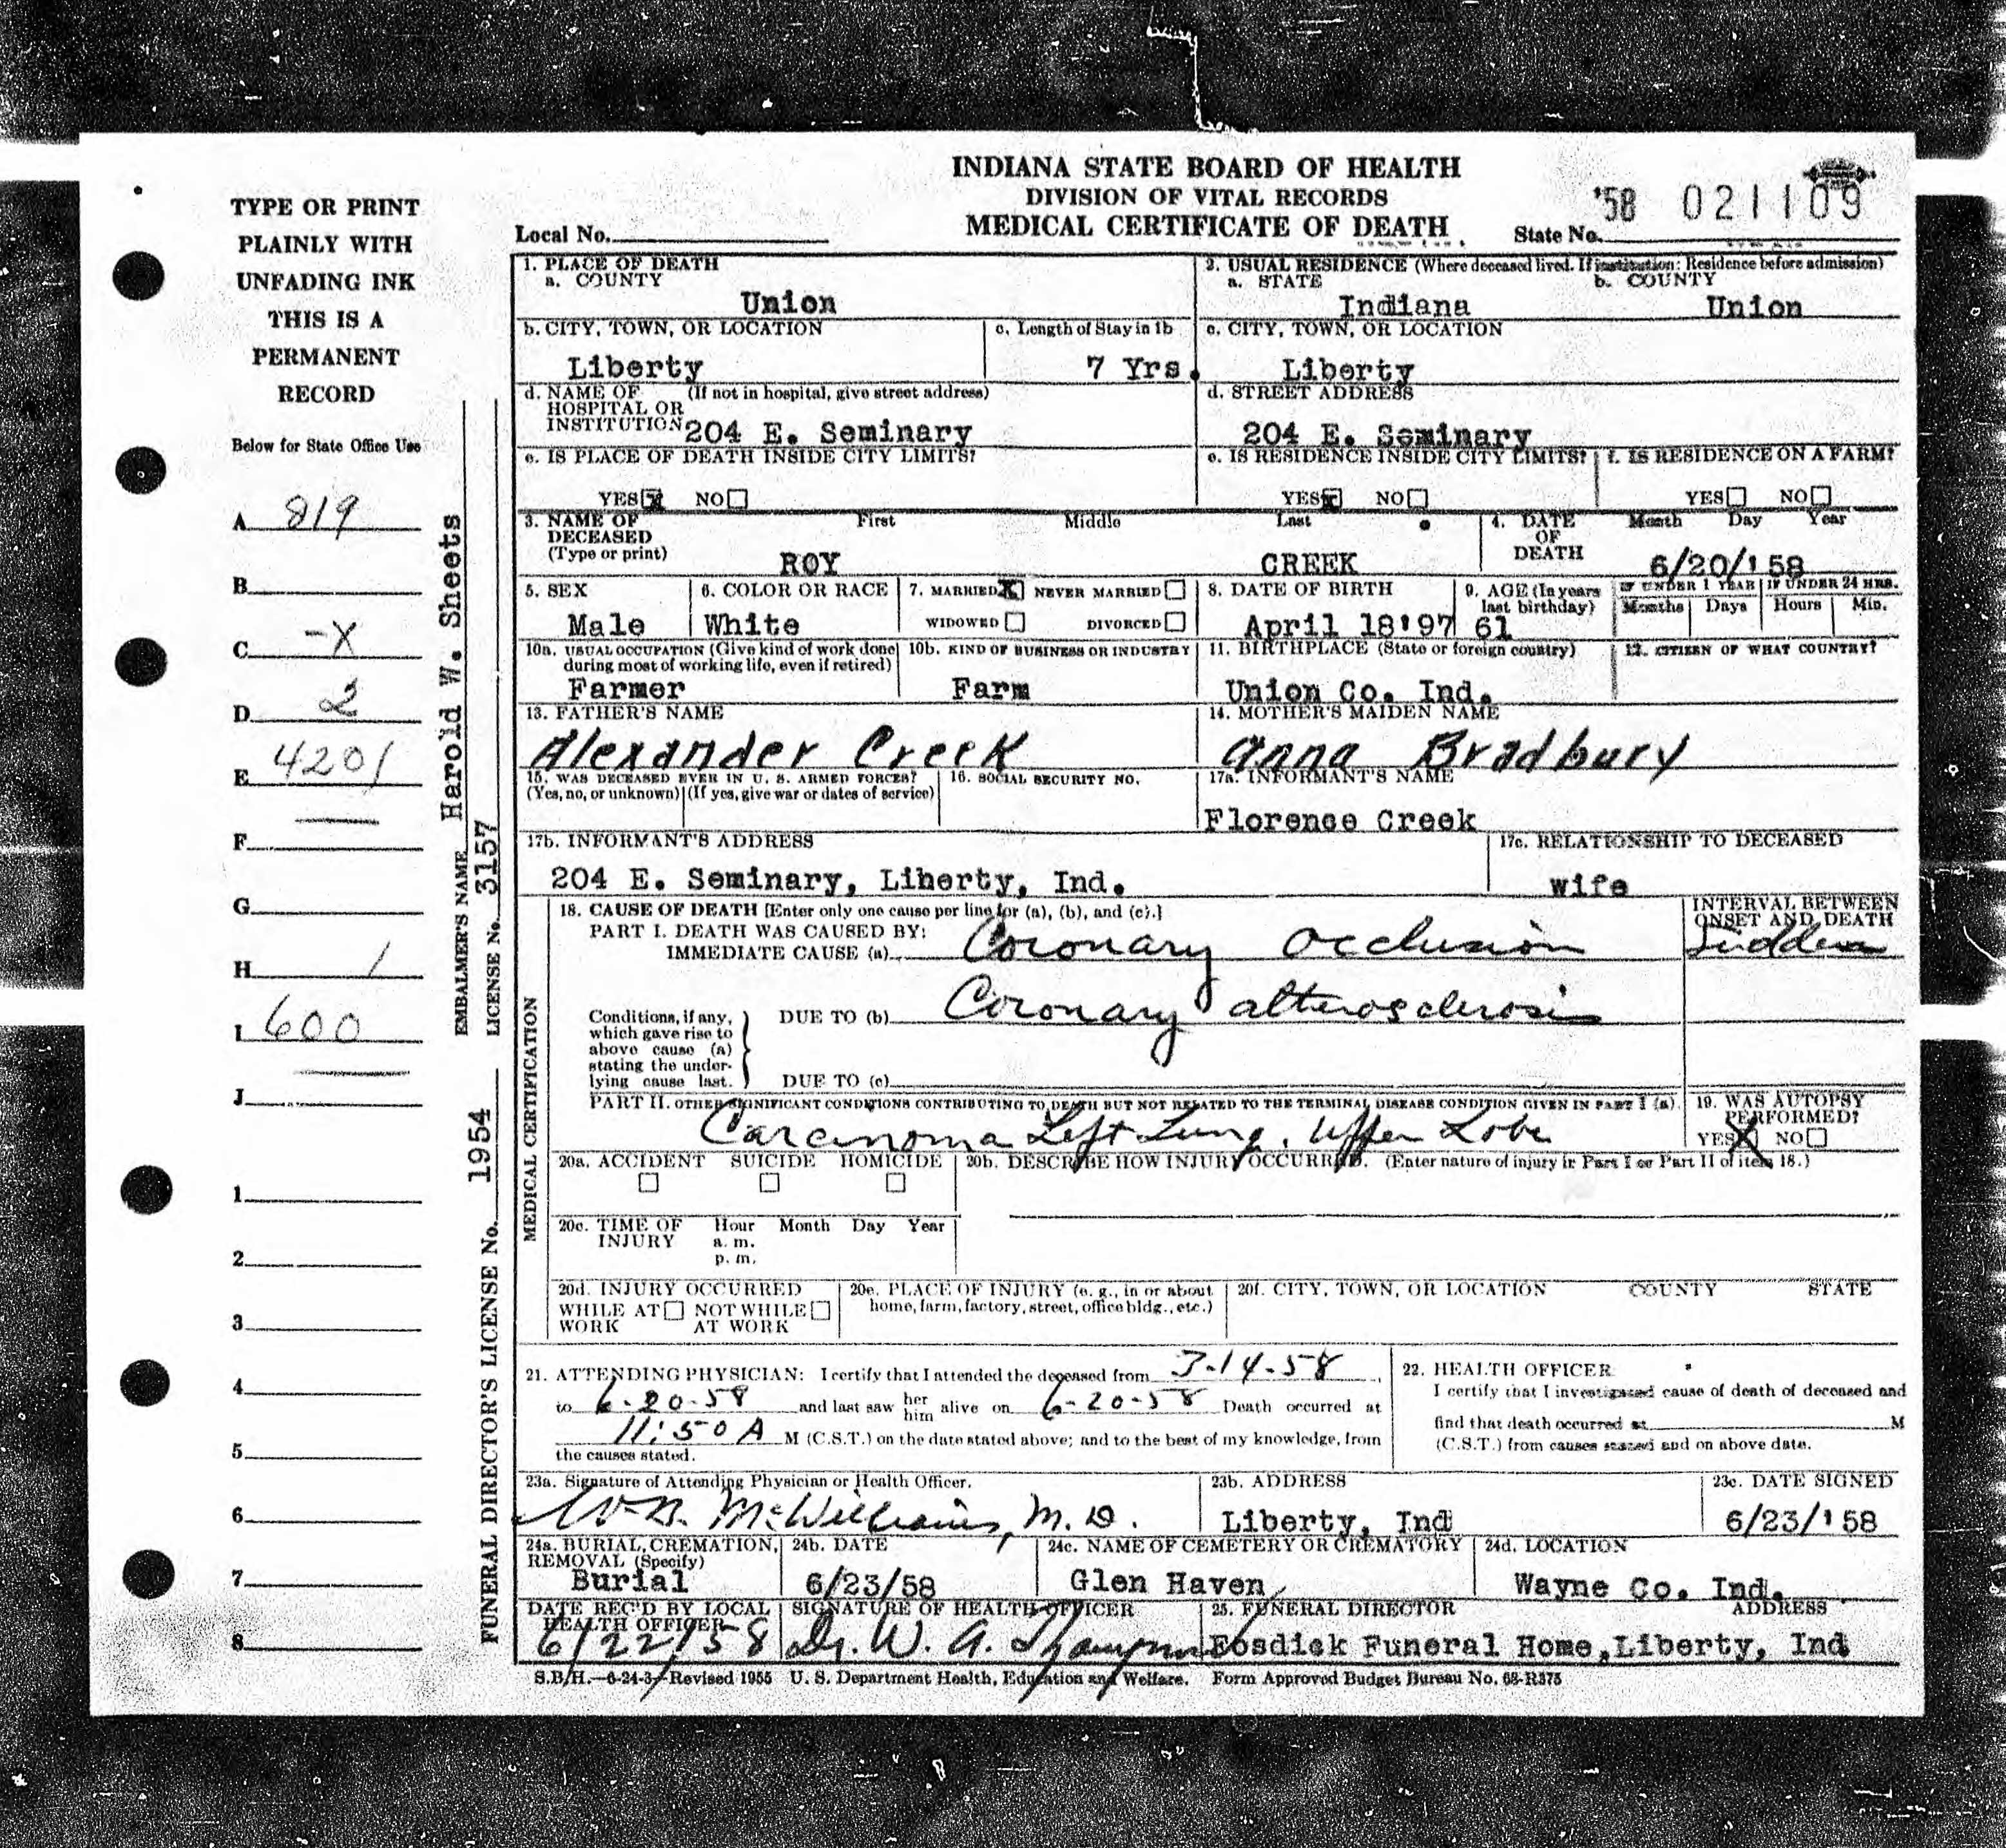 INDIANA STATE BOARD OF HEALTH
DIVISION OF VITAL RECORDS
MEDICAL CERTIFICATE OF DEATH
Local No.
'58 021109
State No.
TYPE OR PRINT
PLAINLY WITH
UNFADING INK
THIS IS A
PERMANENT
RECORD
Below for State Office Use
A 819
B
C -X
D 2
E 4201
F
G
H 1
I 600
J
1
2
3
4
5
6
7
8
EMBALMER'S NAME Harold W. Sheets
LICENSE No. 3157
FUNERAL DIRECTOR'S LICENSE No. 1954
1. PLACE OF DEATH
a. COUNTY
Union
2. USUAL RESIDENCE (Where deceased lived. If institution: Residence before admission)
a. STATE b. COUNTY
Indiana Union
b. CITY, TOWN, OR LOCATION
Liberty
c. Length of Stay in 1b
7 Yrs.
c. CITY, TOWN, OR LOCATION
Liberty
d. NAME OF (If not in hospital, give street address)
HOSPITAL OR
INSTITUTION 204 E. Seminary
d. STREET ADDRESS
204 E. Seminary
e. IS PLACE OF DEATH INSIDE CITY LIMITS?
YES X NO
e. IS RESIDENCE INSIDE CITY LIMITS?
YES X NO
f. IS RESIDENCE ON A FARM?
YES NO
3. NAME OF First Middle Last
DECEASED
(Type or print)
ROY CREEK
4. DATE Month Day Year
OF
DEATH 6/20/'58
5. SEX
Male
6. COLOR OR RACE
White
7. MARRIED X NEVER MARRIED
WIDOWED DIVORCED
8. DATE OF BIRTH
April 18'97
9. AGE (In years
last birthday)
61
IF UNDER 1 YEAR IF UNDER 24 HRS.
Months Days Hours Min.
10a. USUAL OCCUPATION (Give kind of work done
during most of working life, even if retired)
Farmer
10b. KIND OF BUSINESS OR INDUSTRY
Farm
11. BIRTHPLACE (State or foreign country)
Union Co. Ind.
12. CITIZEN OF WHAT COUNTRY?
13. FATHER'S NAME
Alexander Creek
14. MOTHER'S MAIDEN NAME
Anna Bradbury
15. WAS DECEASED EVER IN U. S. ARMED FORCES?
(Yes, no, or unknown) (If yes, give war or dates of service)
16. SOCIAL SECURITY NO.
17a. INFORMANT'S NAME
Florence Creek
17b. INFORMANT'S ADDRESS
204 E. Seminary, Liberty, Ind.
17c. RELATIONSHIP TO DECEASED
wife
MEDICAL CERTIFICATION
18. CAUSE OF DEATH [Enter only one cause per line for (a), (b), and (c).]
PART I. DEATH WAS CAUSED BY:
IMMEDIATE CAUSE (a) Coronary Occlusion
INTERVAL BETWEEN
ONSET AND DEATH
Sudden
Conditions, if any,
which gave rise to
above cause (a)
stating the under-
lying cause last.
DUE TO (b) Coronary altherosclerosis
DUE TO (c)
PART II. OTHER SIGNIFICANT CONDITIONS CONTRIBUTING TO DEATH BUT NOT RELATED TO THE TERMINAL DISEASE CONDITION GIVEN IN PART I (a)
Carcinoma Left Lung, Upper Lobe
19. WAS AUTOPSY
PERFORMED?
YES X NO
20a. ACCIDENT SUICIDE HOMICIDE
20b. DESCRIBE HOW INJURY OCCURRED. (Enter nature of injury in Part I or Part II of item 18.)
20c. TIME OF Hour Month Day Year
INJURY a. m.
p. m.
20d. INJURY OCCURRED
WHILE AT NOT WHILE
WORK AT WORK
20e. PLACE OF INJURY (e. g., in or about
home, farm, factory, street, office bldg., etc.)
20f. CITY, TOWN, OR LOCATION COUNTY STATE
21. ATTENDING PHYSICIAN: I certify that I attended the deceased from 3-14-58,
to 6-20-58 and last saw her him alive on 6-20-58 Death occurred at
11:50 A M (C.S.T.) on the date stated above; and to the best of my knowledge, from
the causes stated.
22. HEALTH OFFICER
I certify that I investigated cause of death of deceased and
find that death occurred at M
(C.S.T.) from causes stated and on above date.
23a. Signature of Attending Physician or Health Officer.
McWilliams, M.D.
23b. ADDRESS
Liberty, Ind
23c. DATE SIGNED
6/23/'58
24a. BURIAL, CREMATION,
REMOVAL (Specify)
Burial
24b. DATE
6/23/58
24c. NAME OF CEMETERY OR CREMATORY
Glen Haven
24d. LOCATION
Wayne Co. Ind.
DATE REC'D BY LOCAL
HEALTH OFFICER
6/22/58
SIGNATURE OF HEALTH OFFICER
Dr. W. A. Thompson
25. FUNERAL DIRECTOR ADDRESS
Fosdick Funeral Home, Liberty, Ind
S.B.H.—6-24-3—Revised 1955 U. S. Department Health, Education and Welfare. Form Approved Budget Bureau No. 68-R375